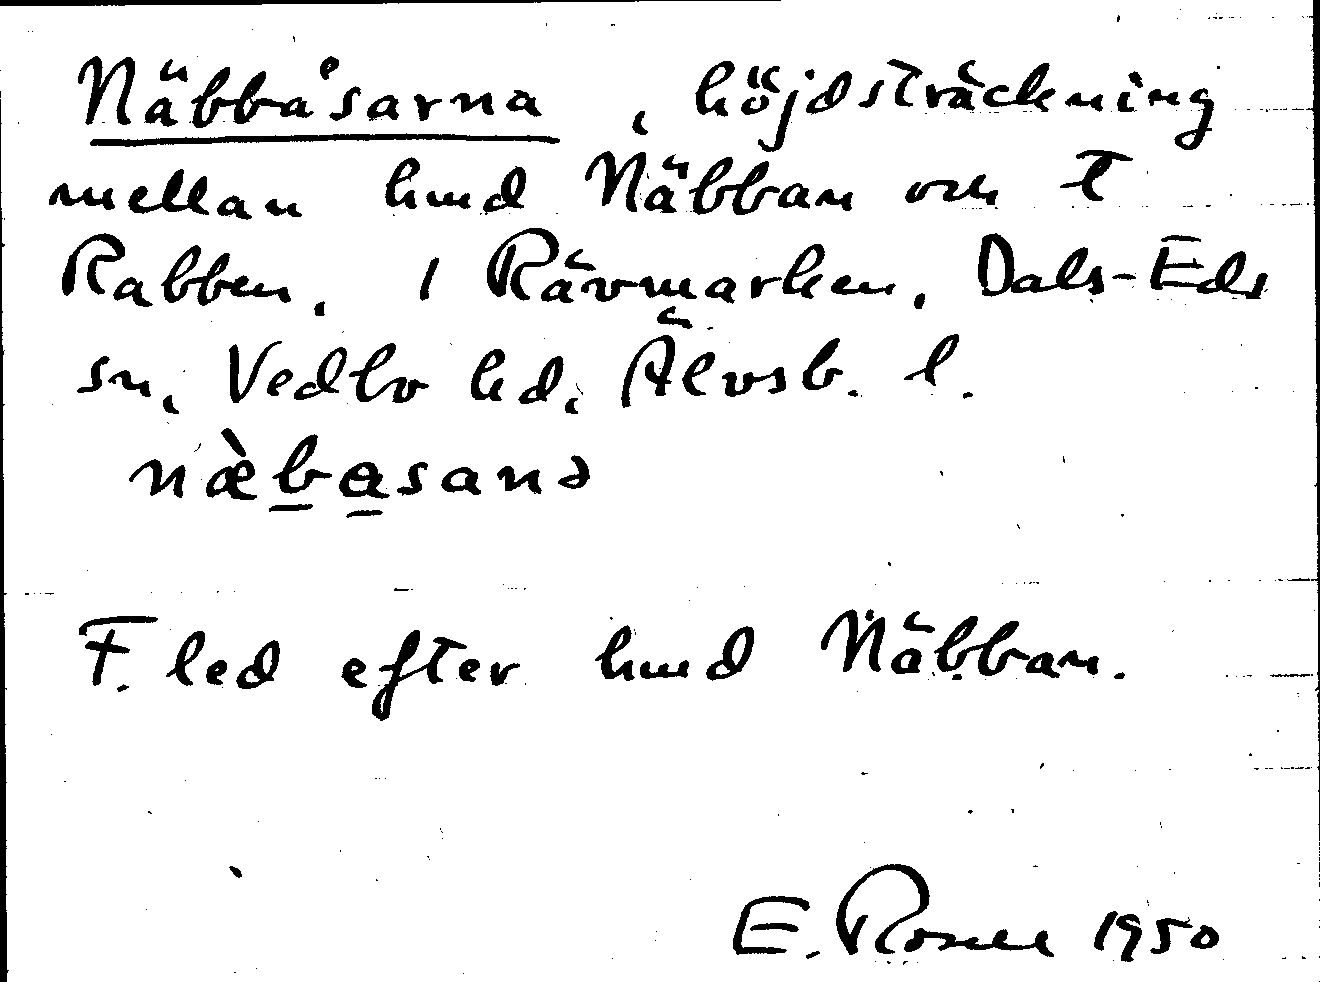 Näbbåsarna, höjdsträckning
mellan hmd Näbban och t
Rabben. I Rävmarken, Dals-Eds
sn, Vedbo hd, Älvsb. l.
næ̀b̲a̲sanə
F. led efter hmd Näbban.
E. 1950